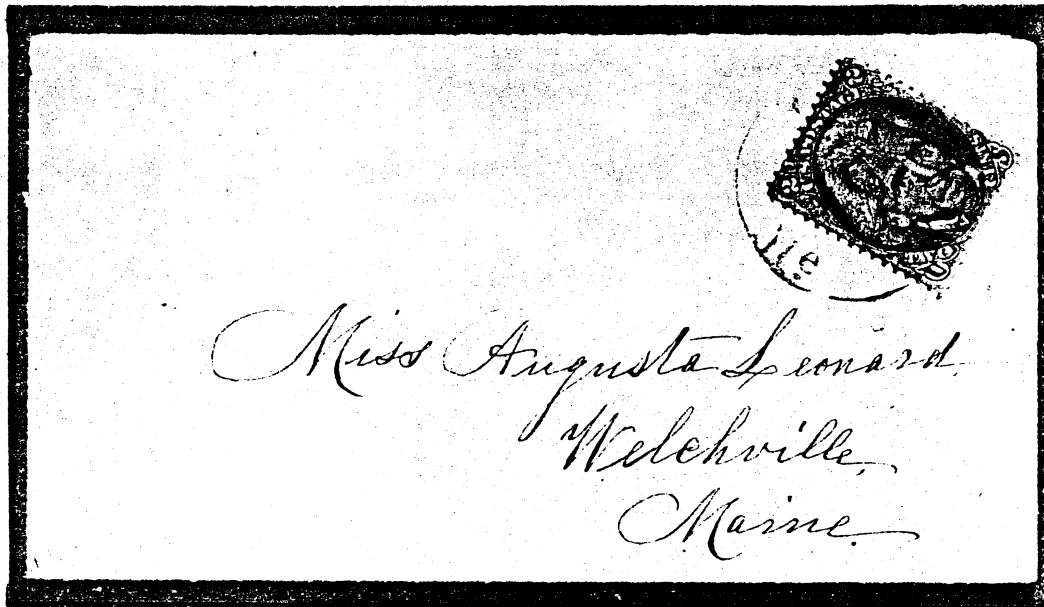 Miss Augusta Leonard.
Welchville,
Maine.